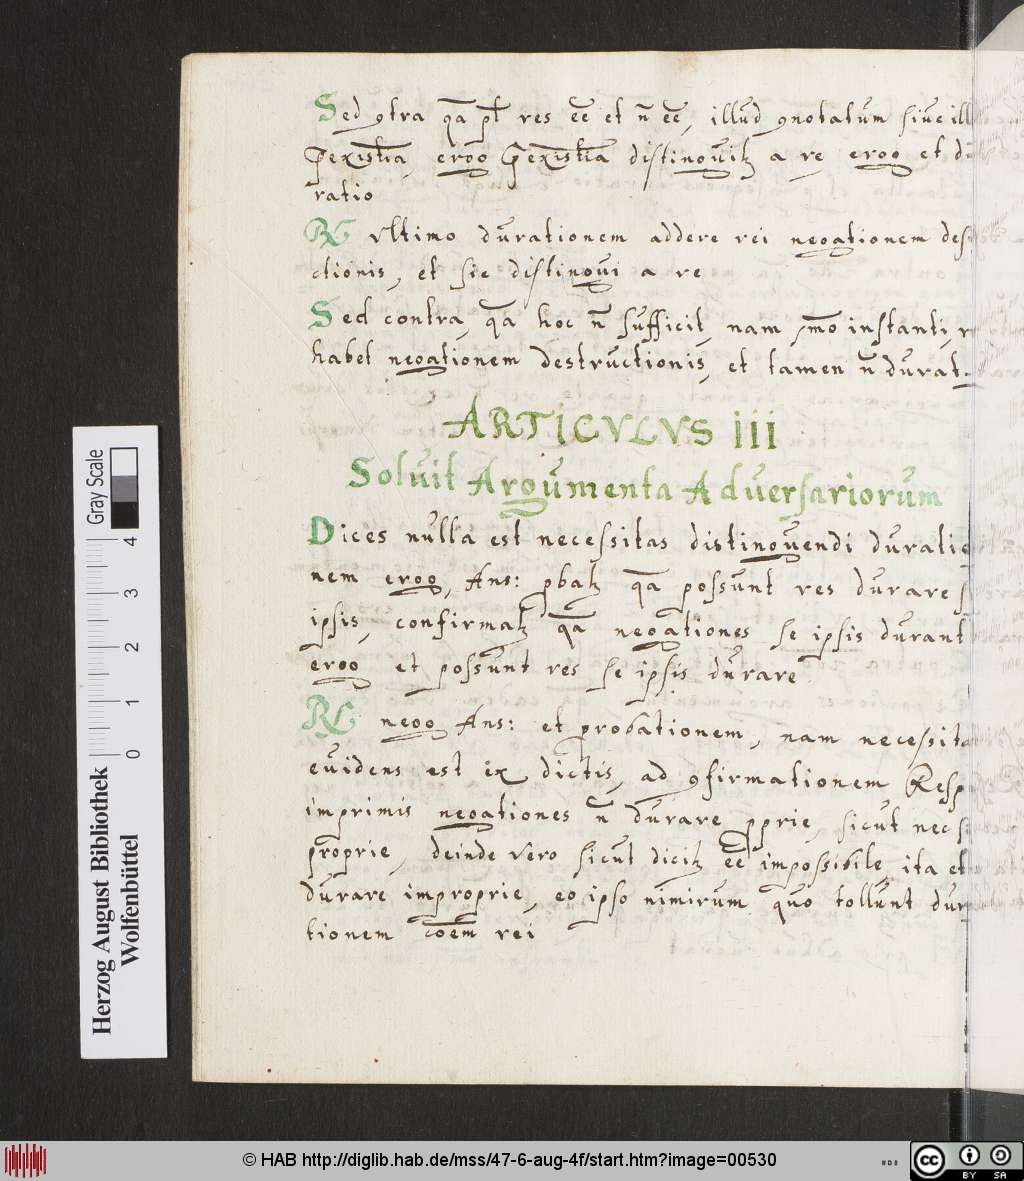 Sed ꝯtra qa̅ pt̅ res ee̅ et n̅ ee̅, illud ꝯnotatum siue ill
p̄existīa, ergo p̄existīa distinguitꝛ a re, ergo et du
ratio
R̃ Vltimo durationem addere rei negationem des
ctionis, et sic distingui a re
Sed contra, qa̅ hoc n̅ sufficit, nam p̄mo instanti, r
habet negationem destructionis, et tamen n̅ durat.
ARTICVLVS iii
Soluit Argumenta Aduersariorum
Dices nulla est necessitas distinguendi duratio
nem ergo, Ans: pbatꝛ qa̅ possunt res durare s
ipsis, confirmatꝛ qa̅ negationes se ipsis durant
ergo et possunt res se ipsis durare
R̃ nego Ans: et probationem, nam necessita
euidens est ex dictis, ad ꝯfirmationem Resp
imprimis negationes n̅ durare pprie, sicut nec s
proprie, deinde vero sicut dicitꝛ ee̅ impossibile, ita et
durare improprie, eo ipso nimirum quo tollunt dur
tionem coem̅ rei
Gray Scale
0 1 2 3 4
Herzog August Bibliothek
Wolfenbüttel
© HAB http://diglib.hab.de/mss/47-6-aug-4f/start.htm?image=00530
cc BY SA